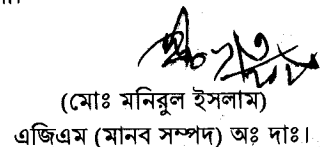 (মোঃ মনিরুল ইসলাম)
এজিএম (মানব সম্পদ) অঃ দাঃ।